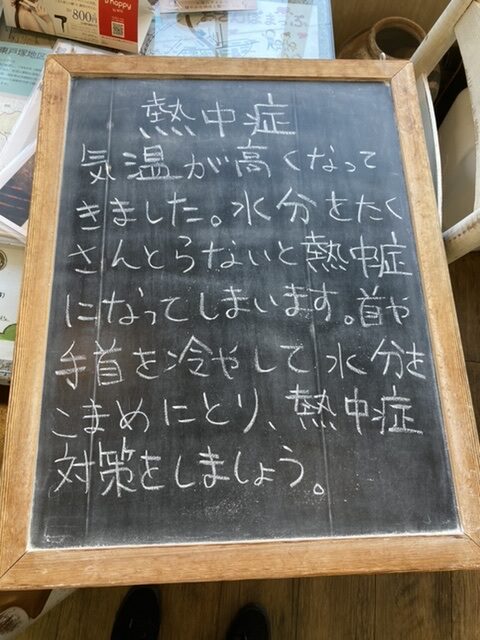 happy
800円
東戸塚地区
熱中症
気温が高くなって
きました。水分をたく
さんとらないと熱中症
になってしまいます。首や
手首を冷やして水分を
こまめにとり、熱中症
対策をしましょう。